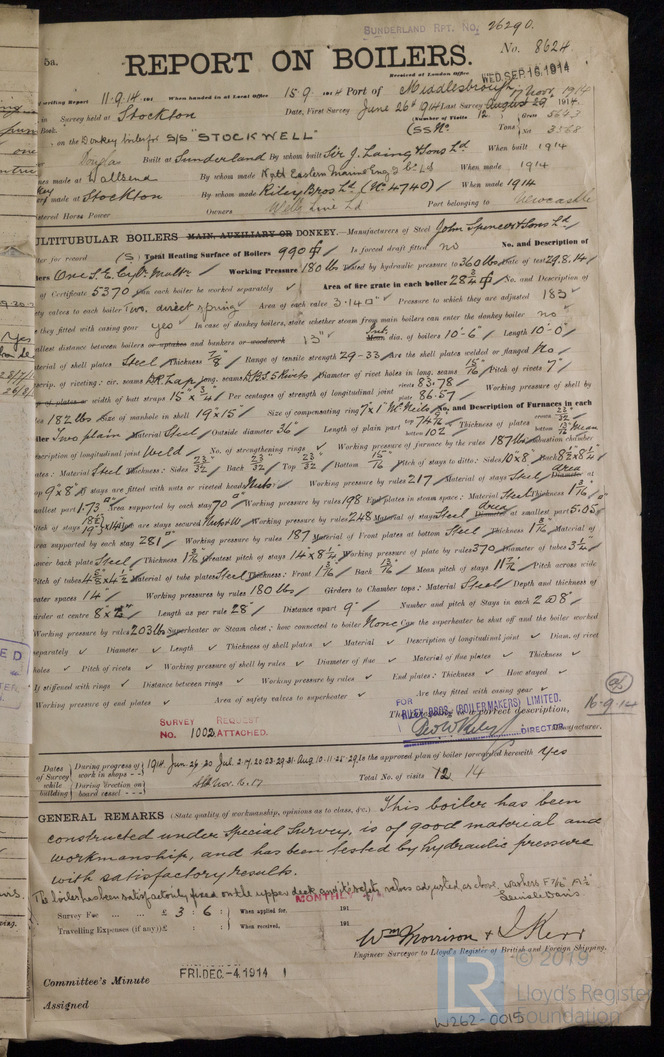 SUNDERLAND RPT. No. 26290
5a.
REPORT ON BOILERS.
No. 8624
Received at London Office WED. SEP 16. 1914
writing Report 11.9.14 When handed in at Local Office 15.9.1914 Port of Middlesbrough
in Survey held at Stockton Date, First Survey June 26th 1914 Last Survey August 29 1914
7 Nov. 1914
Book. (Number of Visits 12
on the Donkey boiler for S/S "STOCKWELL" (SS No Tons Gross 5643 Net 3568
Built at Sunderland By whom built Sir J. Laing & Sons Ld When built 1914
made at Wallsend By whom made North Eastern Marine Eng. Co. Ld When made 1914
made at Stockton By whom made Riley Bros Ld (No 4740) When made 1914
stered Horse Power Owners Well Line Ld Port belonging to Newcastle
ULTITUBULAR BOILERS MAIN, AUXILIARY OR DONKEY.—Manufacturers of Steel John Spencer & Sons Ld
ter for record (S) Total Heating Surface of Boilers 990 Is forced draft fitted no No. and Description of
lers One S.E. Cyl. Mult. Working Pressure 180 lbs Tested by hydraulic pressure to 360 lbs Date of test 29.8.14
of Certificate 5370 Can each boiler be worked separately ✓ Area of fire grate in each boiler 28 3/4 No. and Description of
ety valves to each boiler Two, direct spring Area of each valve 3.14 □" Pressure to which they are adjusted 183
they fitted with easing gear yes In case of donkey boilers, state whether steam from main boilers can enter the donkey boiler no
allest distance between boilers or uptakes and bunkers or woodwork 13" Int. dia. of boilers 10'-6" Length 10'-0"
aterial of shell plates Steel Thickness 7/8" Range of tensile strength 29-33 Are the shell plates welded or flanged No
escrip. of riveting: cir. seams D.R. Lap long. seams D.B.S. 5 Rivets Diameter of rivet holes in long. seams 15/16 Pitch of rivets 7"
width of butt straps 15" x 3/4" Per centages of strength of longitudinal joint rivets 83.78 plate 86.57 Working pressure of shell by
les 182 lbs Size of manhole in shell 19 x 15" Size of compensating ring 7 x 1" McNeils No. and Description of Furnaces in each
iler Two plain Material Steel Outside diameter 36" Length of plain part top 74 9/16 bottom 102 Thickness of plates crown 23/32 bottom 23/32
scription of longitudinal joint Weld No. of strengthening rings ✓ Working pressure of furnace by the rules 187 lbs Combustion chamber
ates: Material Steel Thickness: Sides 23/32 Back 23/32 Top 23/32 Bottom 15/16 Pitch of stays to ditto: Sides 10" x 8" Back 8 1/2 x 8 1/4
op 9" x 8" If stays are fitted with nuts or riveted heads Nuts Working pressure by rules 217 Material of stays Steel area Diameter at
mallest part 1.73 □" Area supported by each stay 70 □" Working pressure by rules 198 End plates in steam space: Material Steel Thickness 1 3/16"
Pitch of stays How are stays secured Nuts & W Working pressure by rules 248 Material of stays Steel area Diameter at smallest part 5.05
rea supported by each stay 281 □" Working pressure by rules 187 Material of Front plates at bottom Steel Thickness 1 3/16 Material of
ower back plate Steel Thickness 1 3/16 Greatest pitch of stays 14" x 8 1/4 Working pressure of plate by rules 370 Diameter of tubes 3 1/4"
Pitch of tubes 4 5/8 x 4 1/2 Material of tube plates Steel Thickness: Front 1 3/16 Back 13/16 Mean pitch of stays 11 1/2" Pitch across wide
ater spaces 14" Working pressures by rules 180 lbs Girders to Chamber tops: Material Steel Depth and thickness of
irder at centre 8" x Length as per rule 28" Distance apart 9" Number and pitch of Stays in each 2 @ 8"
Working pressure by rules 203 lbs Superheater or Steam chest; how connected to boiler None Can the superheater be shut off and the boiler worked
eparately ✓ Diameter ✓ Length ✓ Thickness of shell plates ✓ Material ✓ Description of longitudinal joint ✓ Diam. of rivet
holes ✓ Pitch of rivets ✓ Working pressure of shell by rules ✓ Diameter of flue ✓ Material of flue plates ✓ Thickness ✓
If stiffened with rings ✓ Distance between rings ✓ Working pressure by rules ✓ End plates: Thickness ✓ How stayed ✓
Working pressure of end plates ✓ Area of safety valves to superheater ✓ Are they fitted with easing gear ✓
16.9.14
The foregoing is a correct description,
FOR RILEY BROS. (BOILERMAKERS) LIMITED.
DIRECTOR. Manufacturer.
SURVEY REQUEST
No. 1002 ATTACHED.
Dates of Survey while building
During progress of work in shops - - 1914. Jun. 26. 30. Jul. 2. 7. 20. 23. 29. 31. Aug. 10. 11. 25. 29. Is the approved plan of boiler forwarded herewith Yes
During erection on board vessel - - - Total No. of visits 12 14
GENERAL REMARKS (State quality of workmanship, opinions as to class, &c.) This boiler has been
constructed under Special Survey, is of good material and
workmanship, and has been tested by hydraulic pressure
with satisfactory results.
The boiler has been satisfactorily fixed on the upper deck and its safety valves adjusted as above. washers F 7/16" A 1/2"
MONTHLY
Survey Fee ... ... £ 3 : 6 : When applied for, 191
Travelling Expenses (if any) £ : : When received, 191
Wm Morrison & J. Kerr
Engineer Surveyor to Lloyd's Register of British and Foreign Shipping.
Committee's Minute FRI. DEC -4. 1914
Assigned
© 2019
LR
Lloyd's Register
Foundation
W262-0015